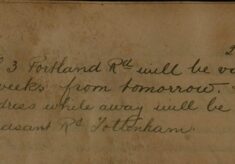 2
3 Portland Rd will be va
weeks from tomorrow.
dress while away will be
easant Rd Tottenham